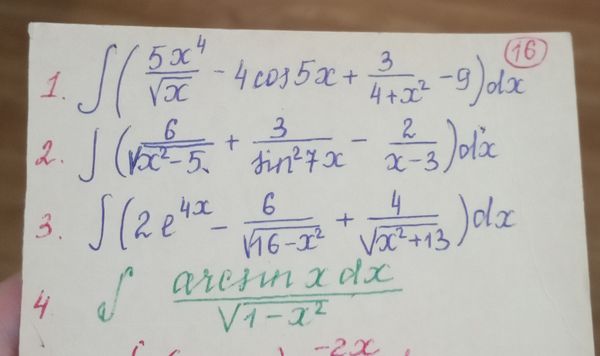 16
1. ∫(5x⁴/√x - 4cos5x + 3/(4+x²) - 9)dx
2. ∫(6/√(x²-5) + 3/sin²7x - 2/(x-3))dx
3. ∫(2e⁴ˣ - 6/√(16-x²) + 4/√(x²+13))dx
4. ∫ arcsin x dx/√(1-x²)
-2x